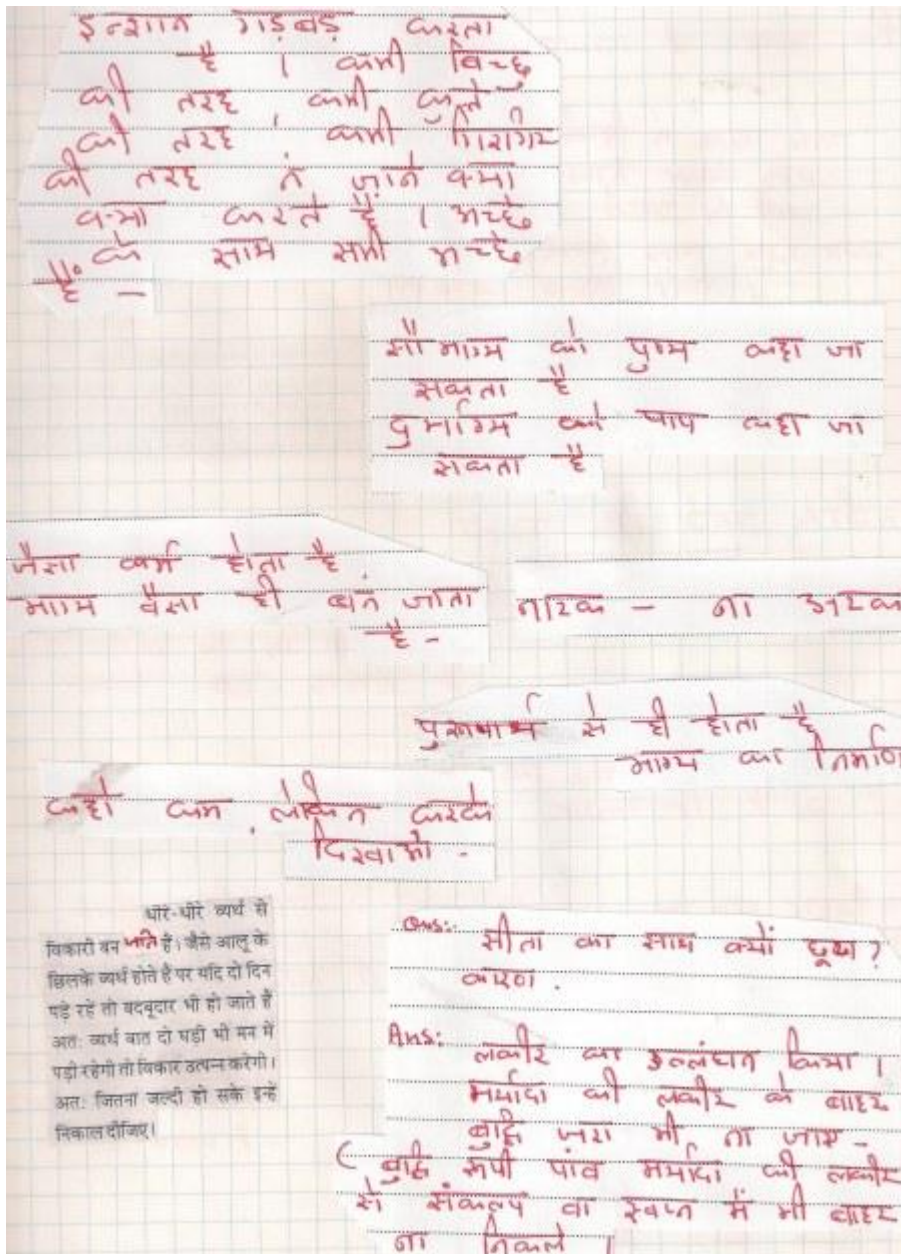 इन्शान गड़बड़ करता
है । कभी बिच्छु
की तरह , कभी कुत्ते
की तरह , कभी गिरगिट
की तरह न जाने क्या
क्या करते है । अच्छे
के साथ सभी अच्छे
हैं -
सौभाग्य को पुण्य कहा जा
सकता है
दुर्भाग्य को पाप कहा जा
सकता है
जैसा कर्म होता है
भाग्य वैसा ही बन जाता
है -
नारक - ना अटक
पुरूषार्थ से ही होता है
भाग्य का निर्माण
कहो कम , लेकिन करके
दिखाओ -
धीरे-धीरे व्यर्थ से
विकारी बन जाते हैं। जैसे आलू के
छिलके व्यर्थ होते हैं पर यदि दो दिन
पड़े रहें तो बदबूदार भी हो जाते हैं
अतः व्यर्थ बात दो घड़ी भी मन में
पड़ी रहेगी तो विकार उत्पन्न करेगी।
अतः जितना जल्दी हो सके इन्हें
निकाल दीजिए।
Qns:- सीता का साथ क्यों छूटा ?
कारण .
Ans: लकीर का उल्लंघन किया ।
मर्यादा की लकीर के बाहर
बुद्धि जरा भी ना जाए -
( बुद्धि रूपी पांव मर्यादा की लकीर
से संकल्प वा स्वप्न में भी बाहर
ना निकले ।